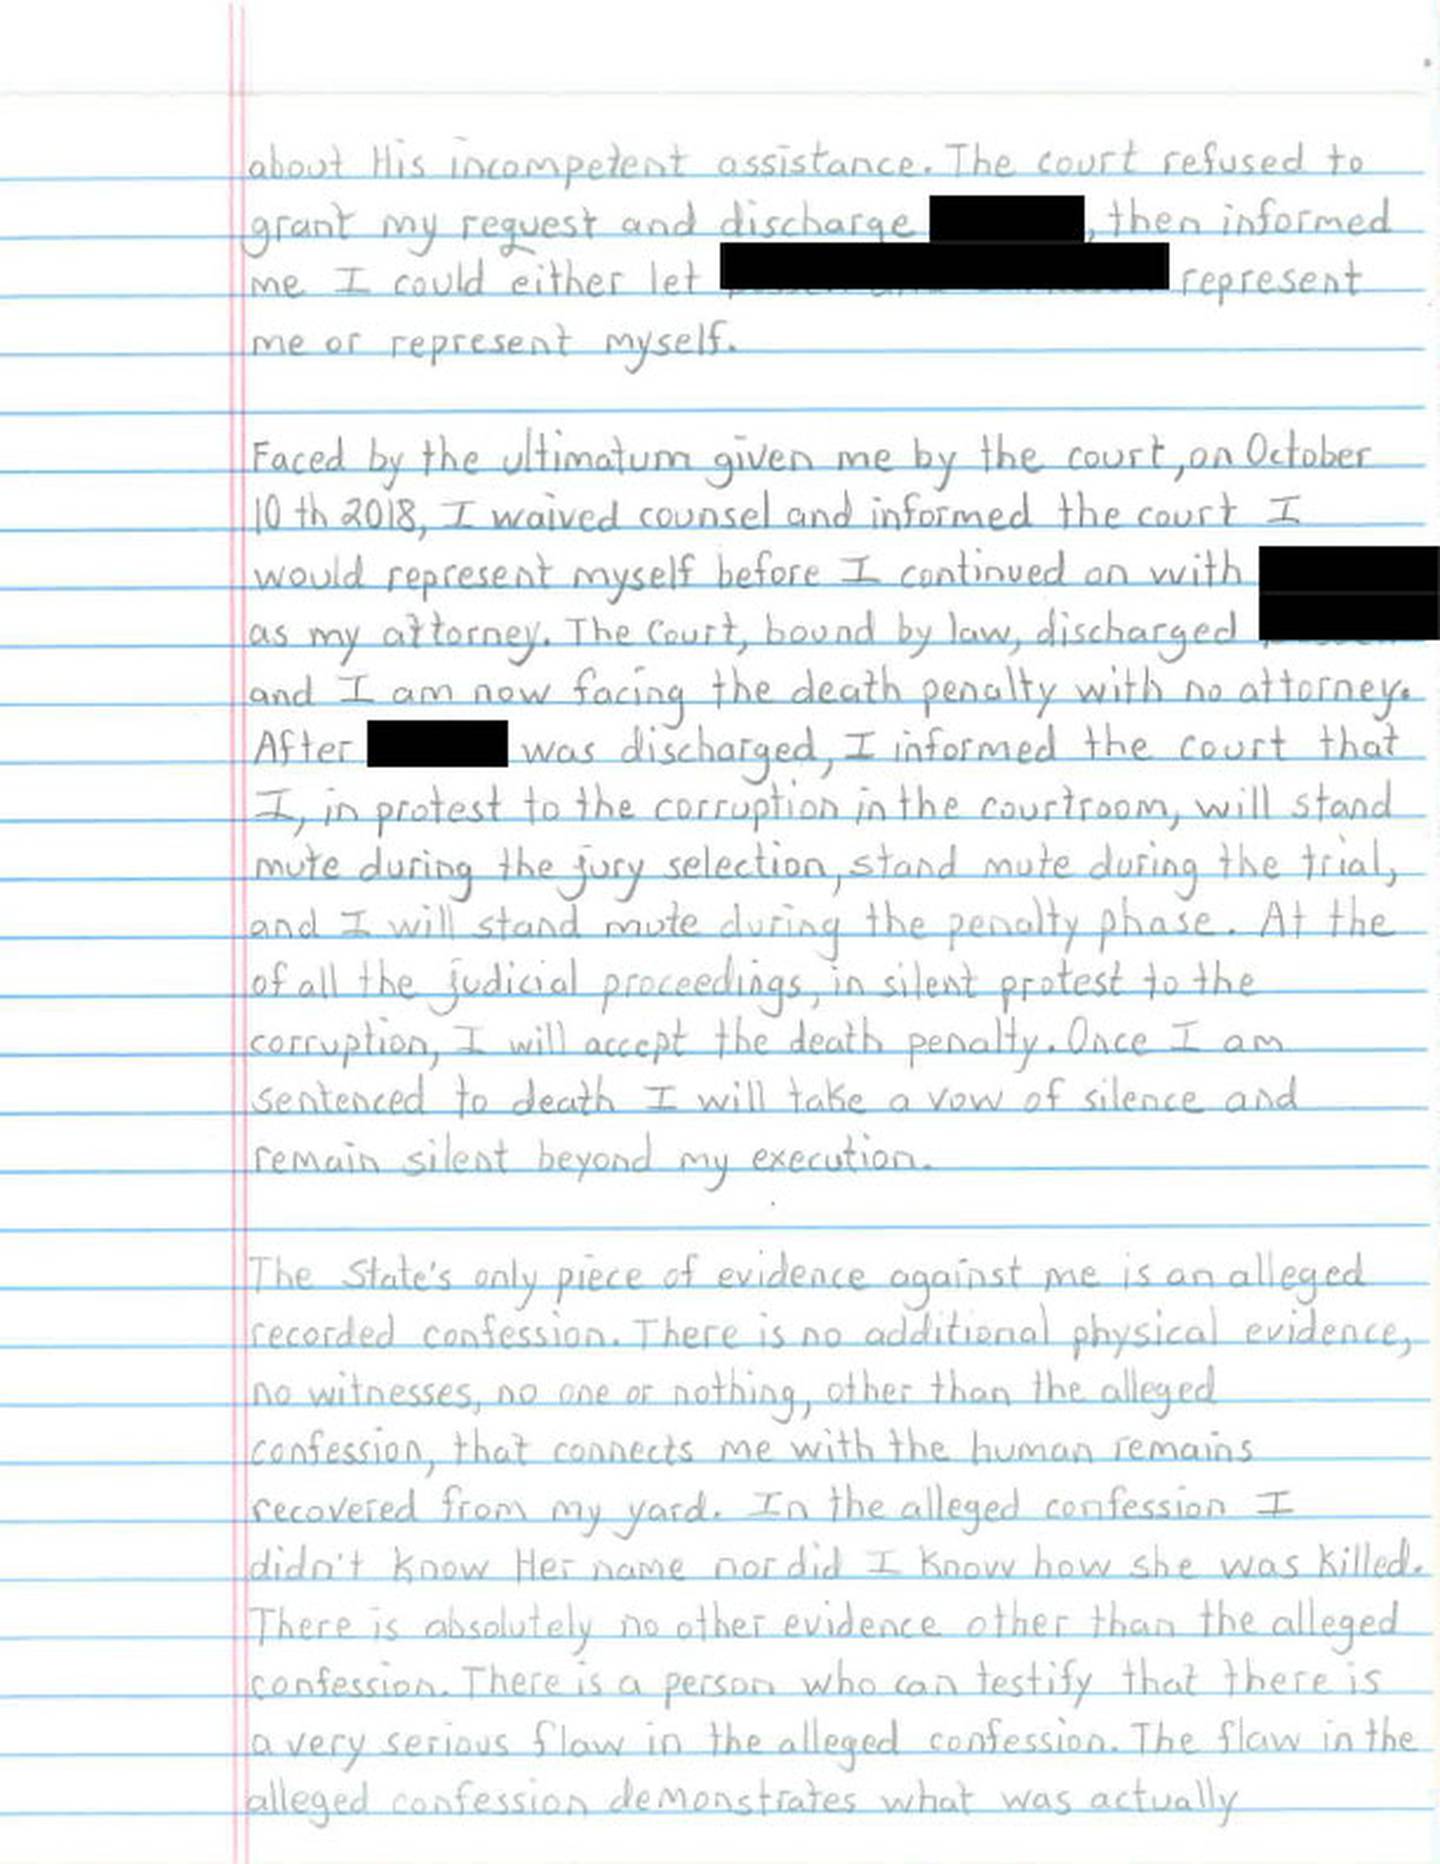 about His incompetent assistance. The court refused to
grant my request and discharge , then informed
me I could either let represent
me or represent myself.
Faced by the ultimatum given me by the court, on October
10th 2018, I waived counsel and informed the court I
would represent myself before I continued on with
as my attorney. The Court, bound by law, discharged
and I am now facing the death penalty with no attorney.
After was discharged, I informed the court that
I, in protest to the corruption in the courtroom, will stand
mute during the jury selection, stand mute during the trial,
and I will stand mute during the penalty phase. At the
of all the judicial proceedings, in silent protest to the
corruption, I will accept the death penalty. Once I am
sentenced to death I will take a vow of silence and
remain silent beyond my execution.
The State's only piece of evidence against me is an alleged
recorded confession. There is no additional physical evidence,
no witnesses, no one or nothing, other than the alleged
confession, that connects me with the human remains
recovered from my yard. In the alleged confession I
didn't know Her name nor did I know how she was killed.
There is absolutely no other evidence other than the alleged
confession. There is a person who can testify that there is
a very serious flaw in the alleged confession. The flaw in the
alleged confession demonstrates what was actually